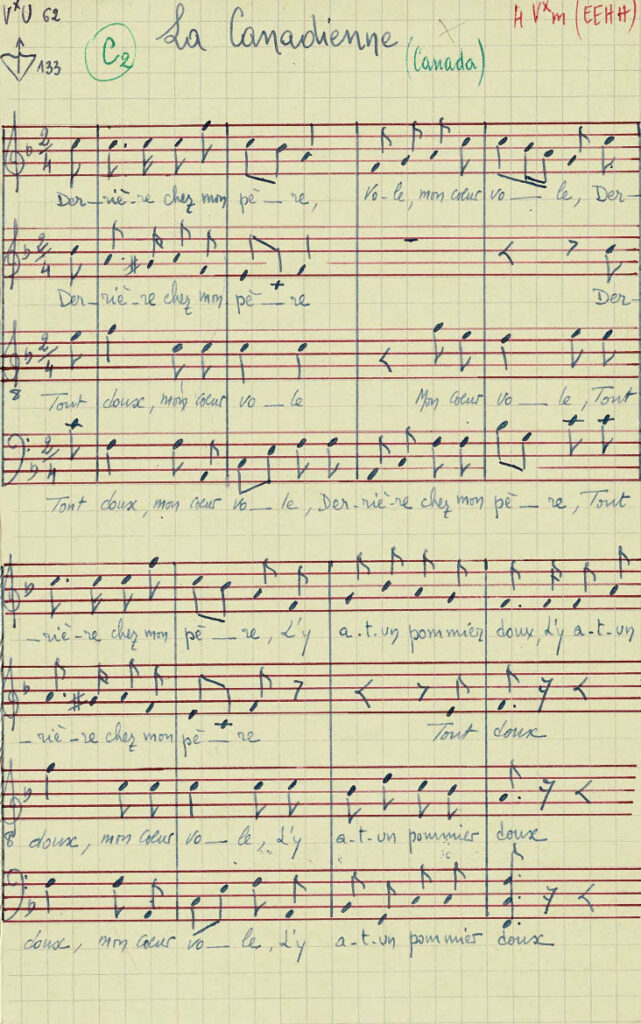 V×U 62
4 V×m (EEHH)
133
C2
La Canadienne
(Canada)
2/4
Der_riè-re chez mon pè_re, Vo-le, mon cœur vo_le, Der-
2/4
Der_riè-re chez mon pè_re Der-
2/4
8
Tout doux, mon cœur vo_le Mon cœur vo_le, Tout
2/4
Tout doux, mon cœur vo_le, Der-riè-re chez mon pè_re, Tout
_riè-re chez mon pè_re, L'y a-t-un pommier doux, L'y a-t-un
_riè-re chez mon pè_re Tout doux
8
doux, mon cœur vo_le, L'y a-t-un pommier doux
doux, mon cœur vo_le, L'y a-t-un pommier doux